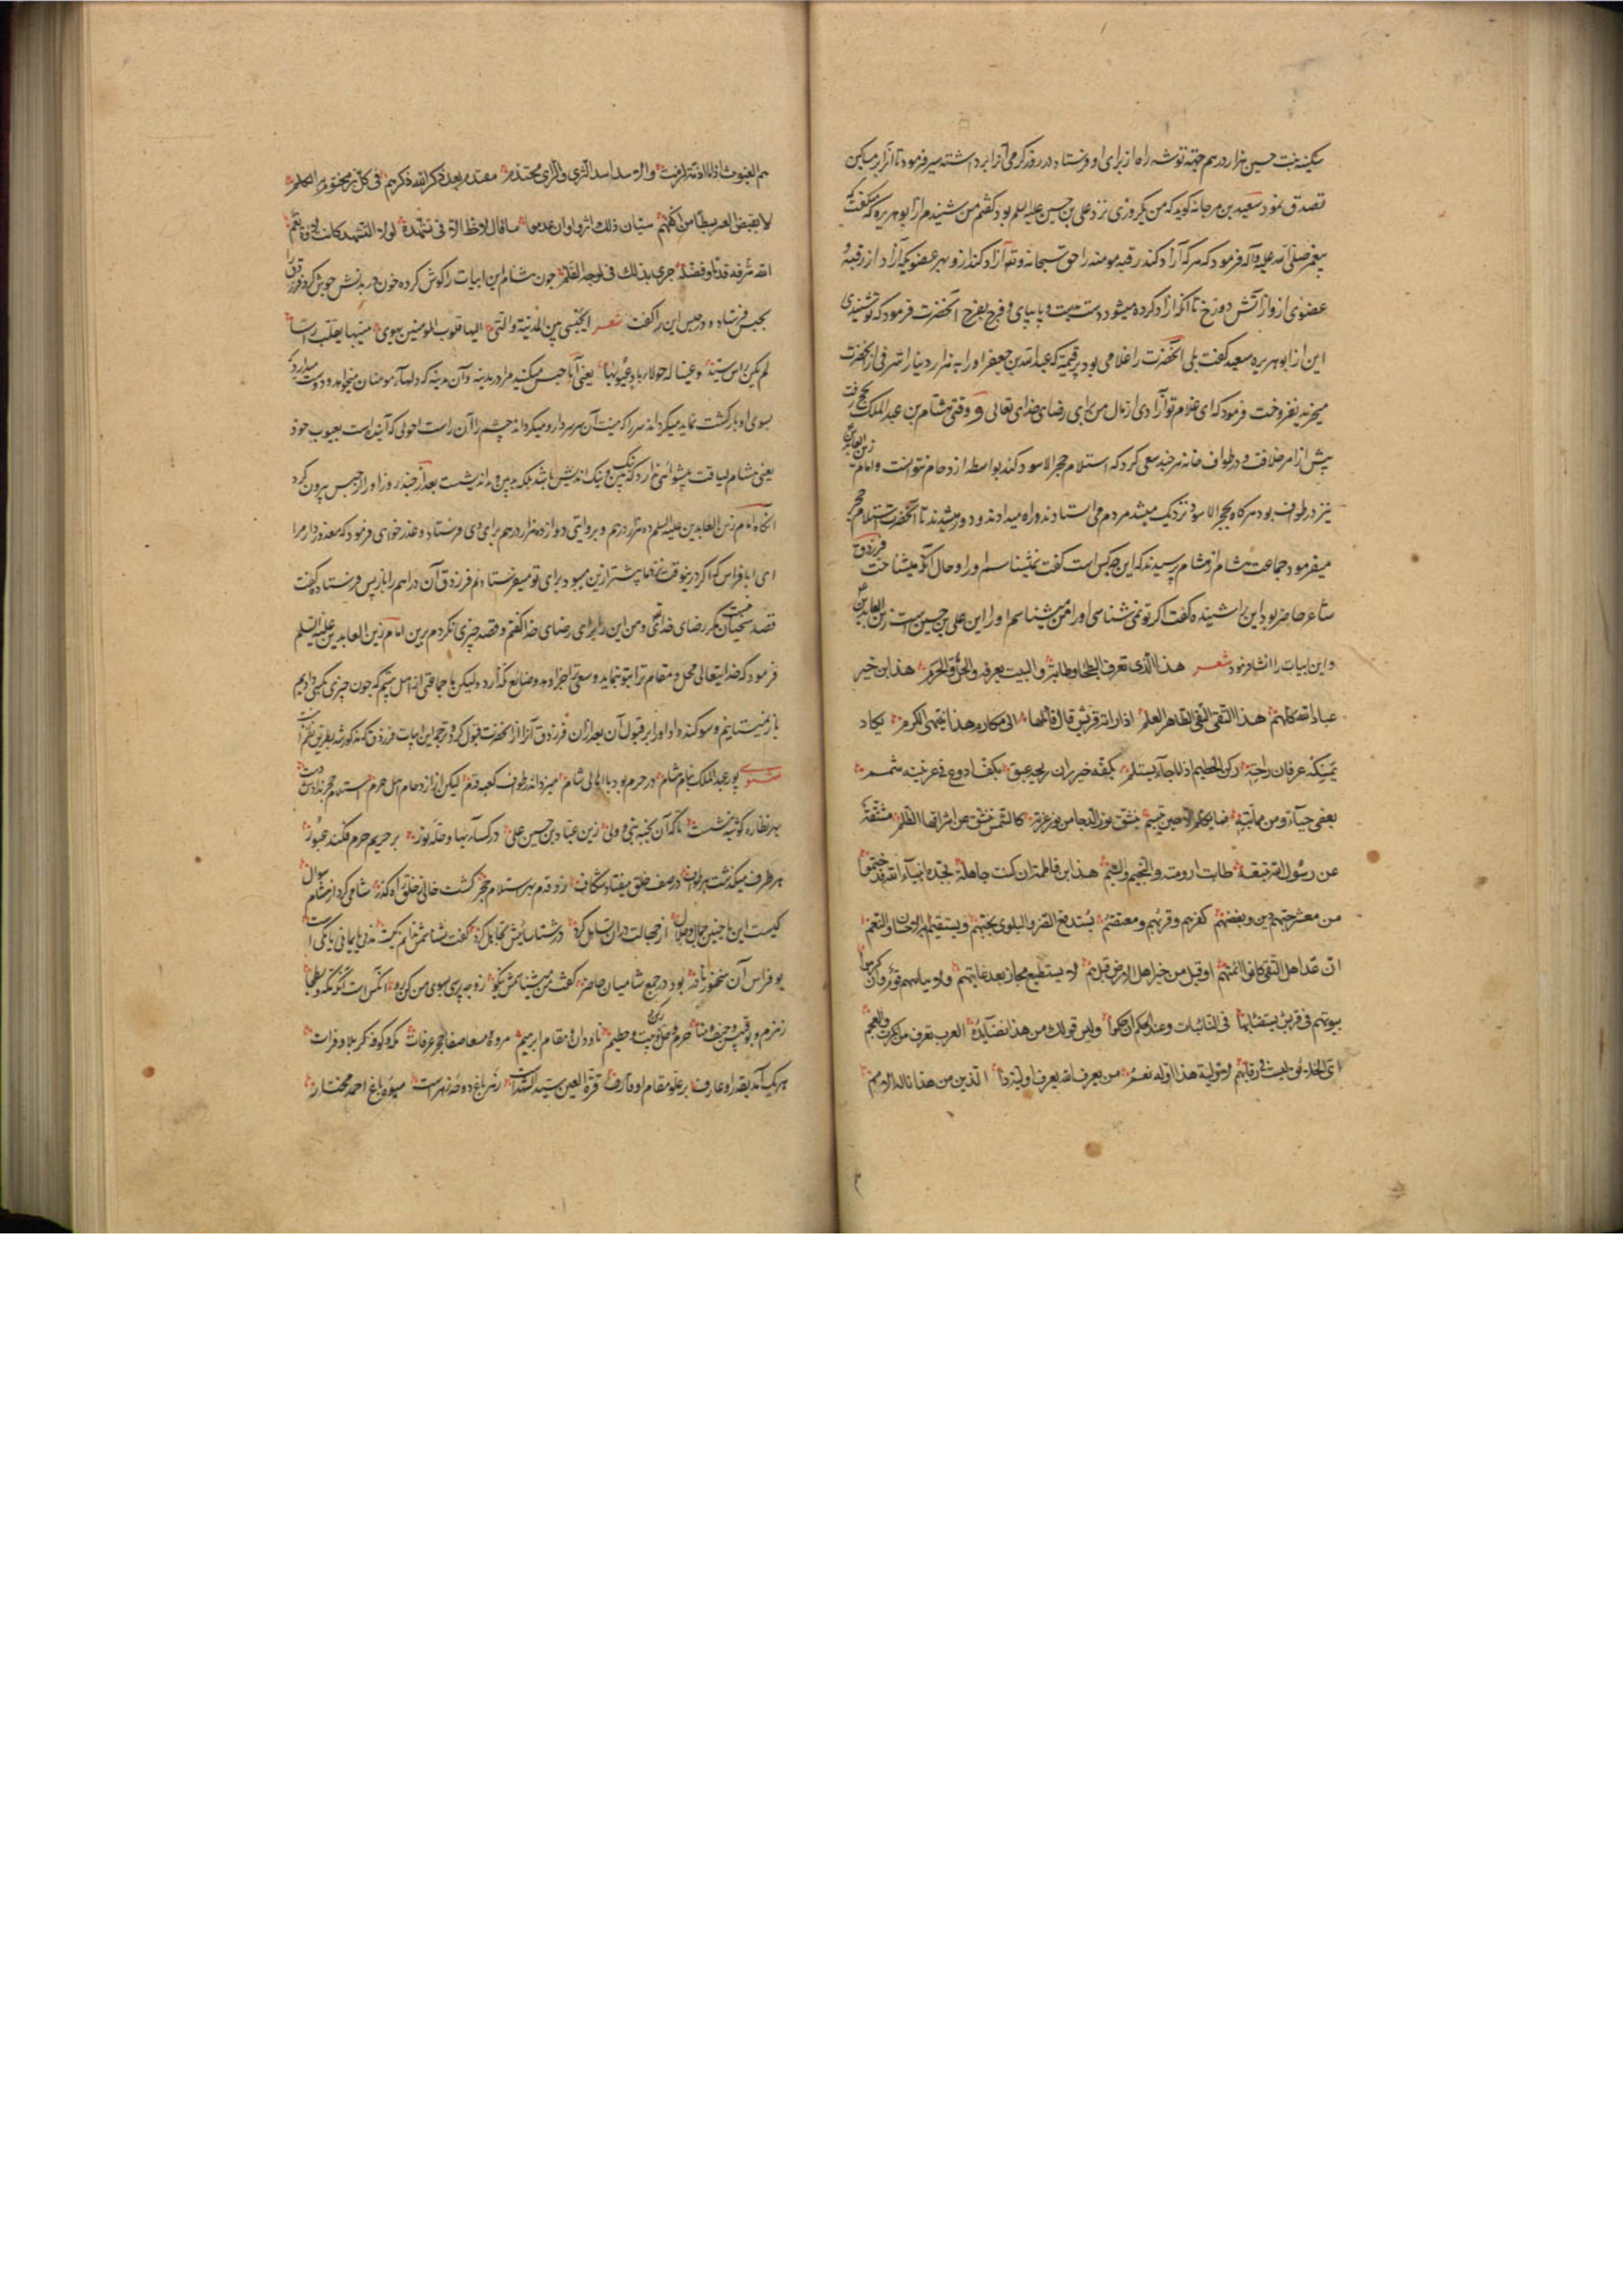 سکینه بنت حسین هزار درهم جهة توشه راه از برای او فرستاد در روز کرمی آنرا برداشته میفرمود تا آنرا بر مساکین
تصدق نمود سعید بن مرجانه کوید که من یکروزی نزد علی بن حسین علیه السلم بودم کفتم من شنیدم از ابو هریره که میکفت که
پیغمبر صلی الله علیه و آله فرمود که هر که آزاد کند رقبه مومنه را حق سبحانه و تعه آزاد کند از و بهر عضویکه آزاد از رقبهٔ
عضوی از و از آتش دوزخ تا آنکه آزاد کرده میشود دست بدست و پا بپای و فرج بفرج آنحضرت فرمود که تو شنیدی
این از ابو هریره سعید کفت بلی آنحضرت را غلامی بود بر قیمتی که عبد الله بن جعفر او را به هزار دینار اشرفی از آنحضرت
میخرید نفروخت فرمود که ای غلام تو آزادی از مال من برای رضای خدای تعالی و وقتی هشام بن عبد الملک بحج رفت
پیش از امر خلافت و در طواف خانه هر چند سعی کرد که استلام حجر الاسود کند بواسطه ازدحام نتوانست و امام زین العابدین
نیز در طواف بود هر کاه بحجر الاسود نزدیک میشد مردم می استادند و راه میدادند و دور میشدند تا آنحضرت استلام حجر
میفرمود جماعت شام از هشام پرسیدند که این چه کس است کفت نمیشناسم او را و حال آنکه میشناخت فرزدق
شاعر حاضر بود این را شنیده کفت اکر تو نمی شناسی او را من میشناسم او را این علی بن حسین است زین العابدین
و این ابیات را انشاد نمود شعر هذا الذی تعرف البطحا وطاته والبیت یعرفه والحل والحرم هذا بن خیر
عباد الله کلهم هذا التقی النقی الطاهر العلم اذا راته قریش قال قائلها الی مکارم هذا ینتهی الکرم یکاد
یمسکه عرفان راحته رکن الحطیم اذا ما جاء یستلم بکفه خیزران ریحه عبق بکف اروع فی عرنینه شمم
یغضی حیآء و من مهابته فما یکلم الا حین یبتسم ینشق نور الدجا من نور غرته کالشمس ینشق عن اشراقها الظلم مشتقة
عن رسول الله نبعته طابت ارومته والخیم والشیم هذا بن فاطمة ان کنت جاهله بجده انبیآء الله قد ختموا
من معشر حبهم دین و بغضهم کفر و قربهم و معتصم یستدفع الضر والبلوی بحبهم و یستقیم به الاحسان والنعم
ان عد اهل التقی کانوا ائمتهم او قیل من خیر اهل الارض قیل هم لا یستطیع مجار بعد غایتهم ولا یدانیهم قوم وان کرموا
بیوتهم فی قریش یستضاء بها فی النائبات و عند الحکم ان حکموا ولیس قولک من هذا بضائره العرب تعرف من انکرت والعجم
ای الخلایق لیست فی رقابهم لاولیة هذا او له نعم من یعرف الله یعرف اولیة ذا الدین من هذا ناله الامم
هم الغیوث اذا ما ازمة ازمت والاسد اسد الشری والرای محتدم مقدم بعد ذکر الله ذکرهم فی کل بر مختوم به الکلم
لا یقبض العسر بسطا من اکفهم سیان ذلک ان اثروا وان عدموا ما قال لا قط الا فی تشهده لولا التشهد کانت لاؤه نعم
الله شرفه قدما و فضله جری بذلک فی لوحه القلم چون هشام این ابیات را کوش کرده خون در بدنش جوش کرد فرزدق را
بحبس فرستاد و در حبس این را کفت شعر ایحبسنی بین المدینة والتی الیها قلوب المومنین یهوی منیبها یقلب راسا
لم یکن راس سید وعینا له حولاء باد عیوبها یعنی آیا حبس میکند مرا در مدینه و آن مدینه که دلهای مومنان میخواهد و دوست میدارد که
بسوی او بازکشت نماید میکرداند سر را که نیست آن سر سردار و میکرداند چشم را آن راست احولی که آینده است بعیوب خود
یعنی هشام لیاقت پیشوائی ندارد که نیک بین و نیک اندیش باشد بلکه بد بین و بد اندیشست بعد از چند روز او را از حبس بیرون کرد
آنکاه امام زین العابدین علیه السلم ده هزار درهم و بروایتی دوازده هزار درهم برای وی فرستاد و عذر خواهی فرمود که معذور دار مرا
ای ابا فراس که اکر درینوقت نزد ما بیشتر ازین میبود برای تو میفرستادم فرزدق آن دراهم را باز پس فرستاد و کفت
قصد سخنان مکر رضای خدای تعه و من این را برای رضای خدا کفتم و قصد چیزی نکردم برین امام زین العابدین علیه السلم
فرمود که خدایتعالی محل و مقام ترا بتو نماید و سعی ترا جزا دهد و ضایع نکذارد ولیکن ما جماعتی از اهل بیتیم که چون چیزی بکسی دادیم
باز نمیستانیم و سوکند داد او را بر قبول آن بعد از آن فرزدق آنرا از آنحضرت قبول کرد و ترجمه این ابیات فرزدق که مذکور شد بطریق نظم اینست
مثنوی پور عبد الملک بنام هشام در حرم بود با اهالی شام میزد اندر طواف کعبه قدم لیکن از ازدحام اهل حرم استلام حجر ندادش دست
بهر نظاره کوشه بنشست ناکه آن نخبه نبی و ولی زین عباد بن حسین علی در کساء بها و حله نور بر حریم حرم فکند عبور
هر طرف میکذشت بهر طواف در صف خلق میفتاد شکاف زد قدم بهر استلام حجر کشت خالی ز خلق راه کذر شامی کرد از هشام سوال
کیست این با چنین جمال و جلال از جهالت در آن تعلل کرد در شناسائیش تجاهل کرد کفت نشناسمش ندانم کیست مدنی یا یمانی یا مکی است
بو فراس آن سخنور نادر بود در جمع شامیان حاضر کفت من میشناسمش نیکو زو چه پرسی بسوی من کن رو آنکس است این که مکه و بطحا
زمزم و بوقبیس و خیف و منا حرم و حل و بیت و رکن و حطیم ناودان و مقام ابرهیم مروه مسعا صفا حجر عرفات مکه و کوفه کربلا و فرات
هر یک آمد بقدر او عارف بر علو مقام او واقف قرة العین سید الشهداست زهر باغ دوحه زهراست میوه باغ احمد مختار